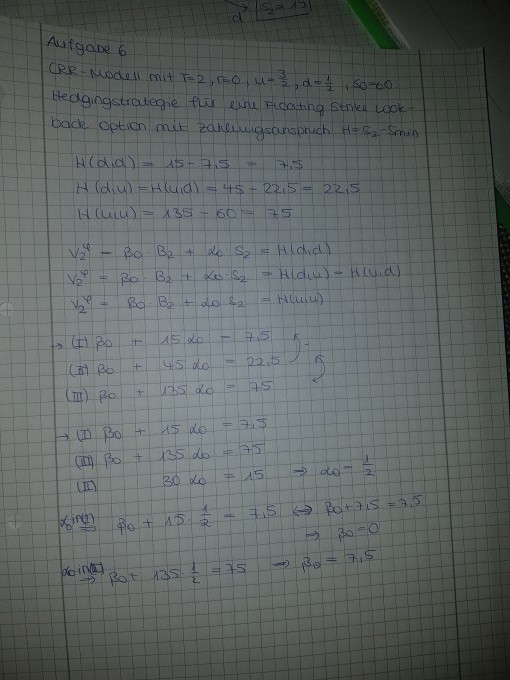 d S₂=15
Aufgabe 6
CRR-Modell mit T=2, r=0, u=3/2, d=1/2, S0=60
Hedgingstrategie für eine Floating Strike Look-
back Option mit Zahlungsanspruch H=S₂-Smin
H(d,d) = 15-7,5 = 7,5
H(d,u)=H(u,d) = 45-22,5 = 22,5
H(u,u) = 135-60 = 75
V₂^φ = β0·B₂ + α0·S₂ = H(d,d)
V₂^φ = β0·B₂ + α0·S₂ = H(d,u) = H(u,d)
V₂^φ = β0·B₂ + α0 S₂ = H(u,u)
→ (I) β0 + 15 α0 = 7,5
(II) β0 + 45 α0 = 22,5
(III) β0 + 135 α0 = 75
→ (I) β0 + 15 α0 = 7,5
(III) β0 + 135 α0 = 75
(II) 30 α0 = 15 → α0 = 1/2
α0 in (I) ⇒ β0 + 15·1/2 = 7,5 ⇔ β0+7,5=7,5
⇒ β0=0
α0 in → β0 + 135·1/2 = 75 → β0 = 7,5